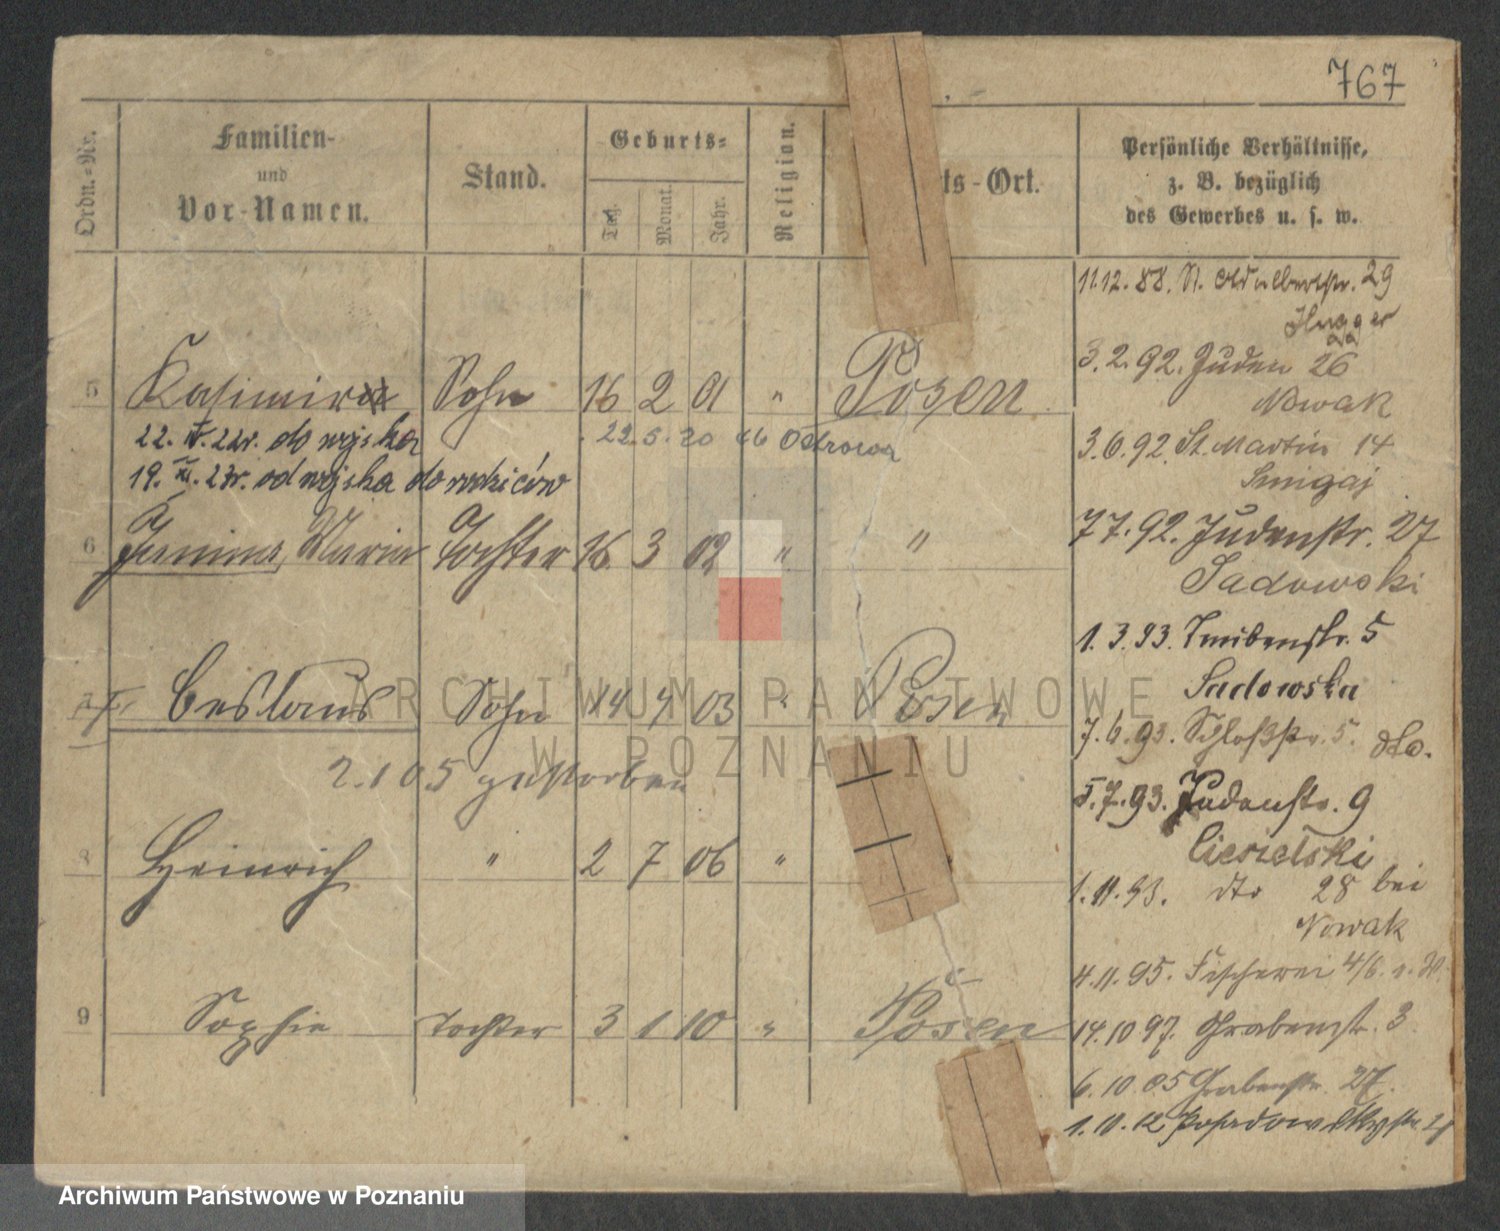 767
Ordn.-Nr.
Familien-
und
Vor-Namen.
Stand.
Geburts-
Tag.
Monat.
Jahr.
Religion.
ts-Ort.
Persönliche Verhältnisse,
z. B. bezüglich
des Gewerbes u. s. w.
11.12.88. St. Adalbertstr. 29
3.2.92. Juden 26
Nowak
3.6.92. St. Martin 14
Smigaj
7.7.92. Judenstr. 27
Sadowski
1.3.93. 5
Sadowska
7.6.93. Schloßstr. 5. dto.
5.7.93. Judenstr. 9
Ciesielski
1.11.93. dto 28 bei
Nowak
4.11.95. Fischerei 4/6.
14.10 97. Grabenstr. 3
6.10.05 Grabenstr. 27.
1.10.12. Posadowskystr.
5 Kasimir Sohn 16 2 01 " Posen
22. IV. 22r. do wojska
22.5.20 Ostrowa
19. XI. 23r. od wojska do rodziców
6 Janina, Maria Tochter 16 3 02 " "
7 Ceslaus Sohn 14 7 03 " Posen
2.1 05 gestorben
8 Heinrich " 2 7 06 "
9 Sophie Tochter 3 1 10 " Posen
ARCHIWUM PAŃSTWOWE
W POZNANIU
Archiwum Państwowe w Poznaniu